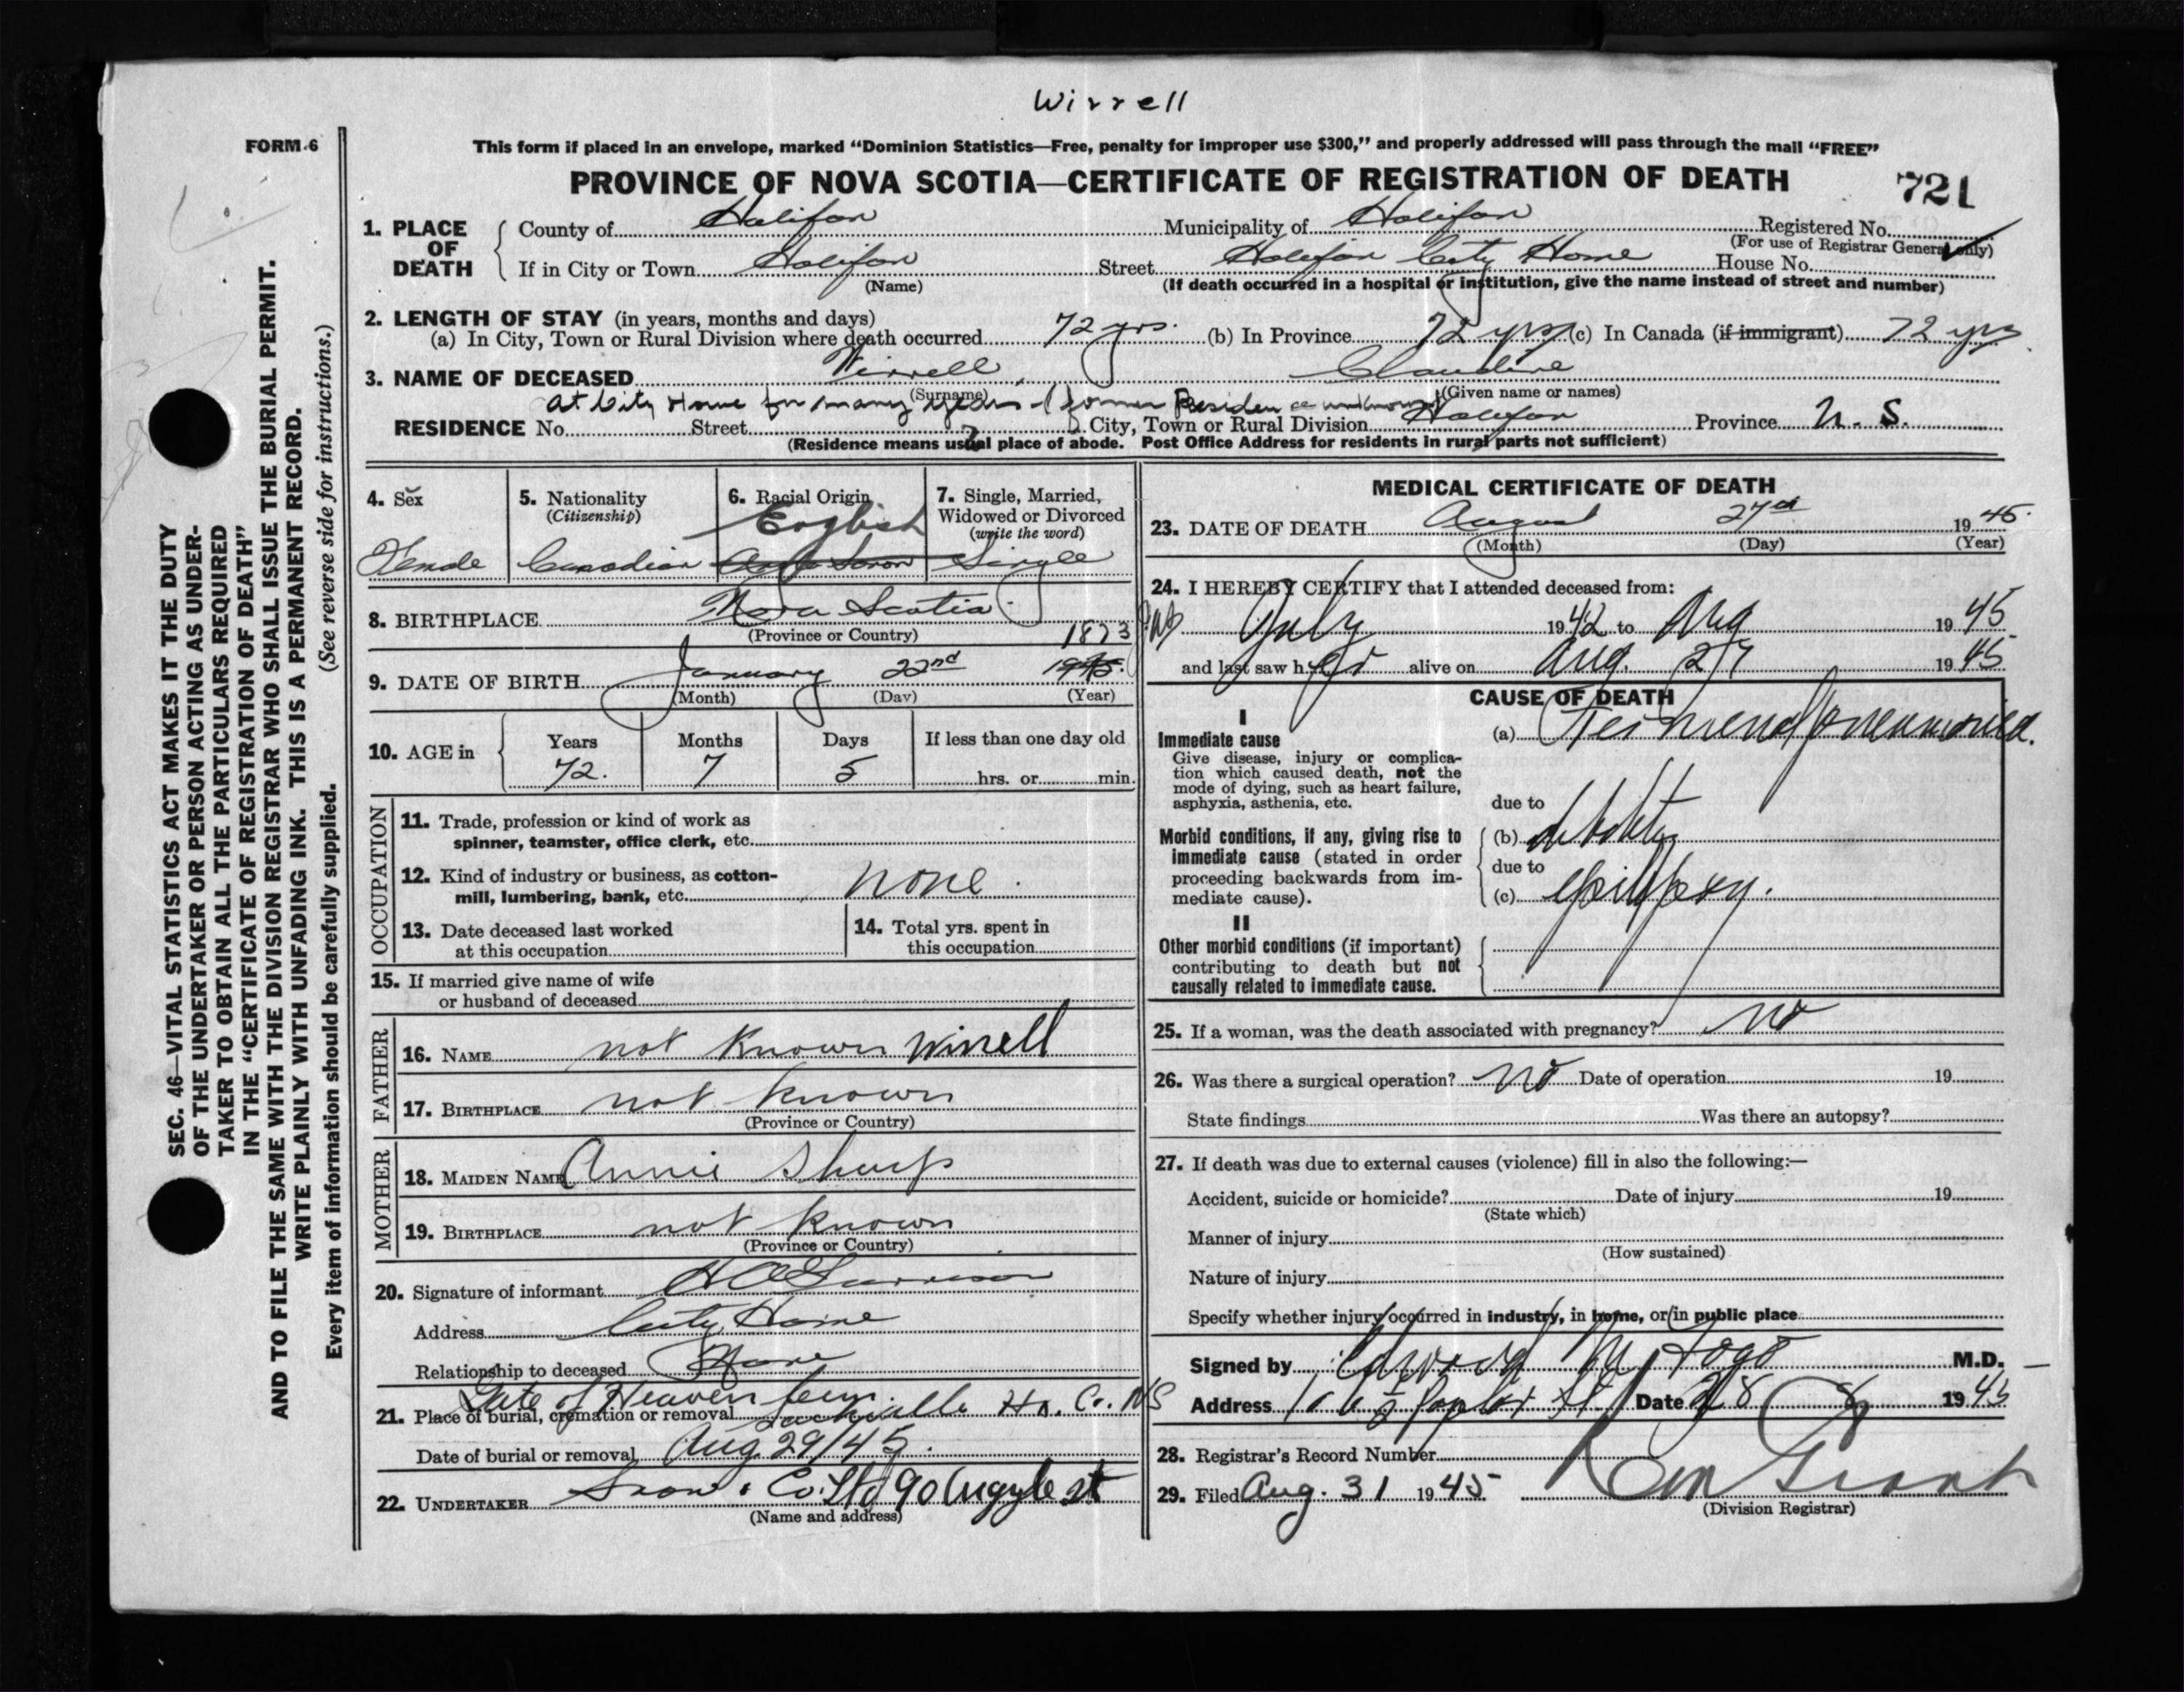 Wirrell
FORM 6
This form if placed in an envelope, marked “Dominion Statistics—Free, penalty for improper use $300,” and properly addressed will pass through the mail “FREE”
PROVINCE OF NOVA SCOTIA—CERTIFICATE OF REGISTRATION OF DEATH 721
1. PLACE OF DEATH County of Halifax Municipality of Halifax Registered No.
(For use of Registrar General only)
If in City or Town Halifax Street Halifax City Home House No.
(Name) (If death occurred in a hospital or institution, give the name instead of street and number)
2. LENGTH OF STAY (in years, months and days)
(a) In City, Town or Rural Division where death occurred 72 yrs. (b) In Province 72 yrs (c) In Canada (if immigrant) 72 yrs
3. NAME OF DECEASED Wirrell, Claudine
(Surname) (Given name or names)
at City Home for many years - (former Residence unknown)
RESIDENCE No. Street City, Town or Rural Division Halifax Province N. S.
(Residence means usual place of abode. Post Office Address for residents in rural parts not sufficient)
4. Sex 5. Nationality (Citizenship) 6. Racial Origin 7. Single, Married, Widowed or Divorced (write the word)
English
Female Canadian Anglo Saxon Single
8. BIRTHPLACE Nova Scotia
(Province or Country)
1873
9. DATE OF BIRTH January 22nd 1945
(Month) (Day) (Year)
10. AGE in Years Months Days If less than one day old
72. 7 5 hrs. or min.
OCCUPATION
11. Trade, profession or kind of work as spinner, teamster, office clerk, etc.
12. Kind of industry or business, as cotton-mill, lumbering, bank, etc. none
13. Date deceased last worked at this occupation 14. Total yrs. spent in this occupation
15. If married give name of wife or husband of deceased
FATHER
16. NAME not known Wirrell
17. BIRTHPLACE not known
(Province or Country)
MOTHER
18. MAIDEN NAME Annie Sharp
19. BIRTHPLACE not known
(Province or Country)
20. Signature of informant
Address City Home
Relationship to deceased None
21. Place of burial, cremation or removal Gate of Heaven Cem. Sackville Hx. Co. NS
Date of burial or removal Aug 29/45.
22. UNDERTAKER Snow & Co. Ltd 90 Argyle St
(Name and address)
MEDICAL CERTIFICATE OF DEATH
23. DATE OF DEATH August 27th 1945.
(Month) (Day) (Year)
24. I HEREBY CERTIFY that I attended deceased from:
July 1942 to Aug 1945
and last saw her alive on Aug. 27 1945
CAUSE OF DEATH
I
Immediate cause
Give disease, injury or complication which caused death, not the mode of dying, such as heart failure, asphyxia, asthenia, etc.
(a) Terminal pneumonia.
due to
Morbid conditions, if any, giving rise to immediate cause (stated in order proceeding backwards from immediate cause).
(b) debility
due to
(c) epilepsy.
II
Other morbid conditions (if important) contributing to death but not causally related to immediate cause.
25. If a woman, was the death associated with pregnancy? no
26. Was there a surgical operation? no Date of operation 19
State findings Was there an autopsy?
27. If death was due to external causes (violence) fill in also the following:—
Accident, suicide or homicide? Date of injury 19
(State which)
Manner of injury
(How sustained)
Nature of injury
Specify whether injury occurred in industry, in home, or in public place
Signed by M.D.
Address Date 28 8 1945
28. Registrar's Record Number
29. Filed Aug. 31 1945
(Division Registrar)
SEC. 46—VITAL STATISTICS ACT MAKES IT THE DUTY
OF THE UNDERTAKER OR PERSON ACTING AS UNDER-
TAKER TO OBTAIN ALL THE PARTICULARS REQUIRED
IN THE “CERTIFICATE OF REGISTRATION OF DEATH”
AND TO FILE THE SAME WITH THE DIVISION REGISTRAR WHO SHALL ISSUE THE BURIAL PERMIT.
WRITE PLAINLY WITH UNFADING INK. THIS IS A PERMANENT RECORD.
Every item of information should be carefully supplied. (See reverse side for instructions.)